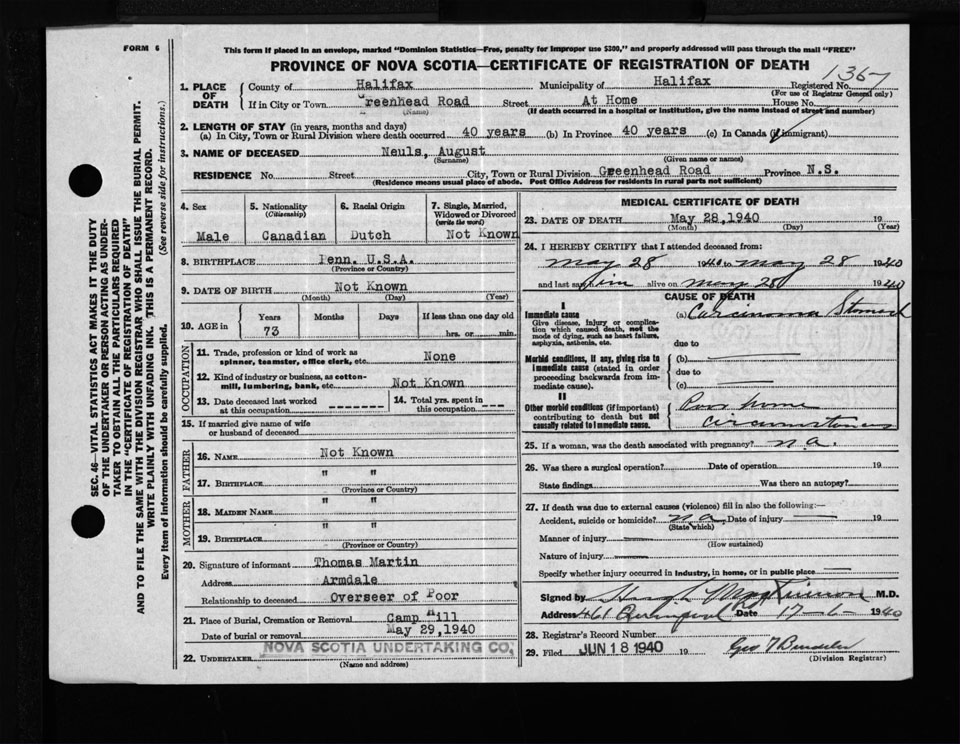 FORM 6
This form if placed in an envelope, marked "Dominion Statistics—Free, penalty for improper use $300," and properly addressed will pass through the mail "FREE"
PROVINCE OF NOVA SCOTIA—CERTIFICATE OF REGISTRATION OF DEATH
1. PLACE OF DEATH
County of Halifax Municipality of Halifax Registered No. 1367
(For use of Registrar General only)
If in City or Town Greenhead Road Street At Home House No.
(Name) (If death occurred in a hospital or institution, give the name instead of street and number)
2. LENGTH OF STAY (in years, months and days)
(a) In City, Town or Rural Division where death occurred 40 years (b) In Province 40 years (c) In Canada (if immigrant)
3. NAME OF DECEASED Neuls, August
(Surname) (Given name or names)
RESIDENCE No. Street City, Town or Rural Division Greenhead Road Province N.S.
(Residence means usual place of abode. Post Office Address for residents in rural parts not sufficient)
4. Sex Male
5. Nationality (Citizenship) Canadian
6. Racial Origin Dutch
7. Single, Married, Widowed or Divorced (write the word) Not Known
8. BIRTHPLACE Penn. U.S.A.
(Province or Country)
9. DATE OF BIRTH Not Known
(Month) (Day) (Year)
10. AGE in Years Months Days If less than one day old
73 hrs. or min.
OCCUPATION
11. Trade, profession or kind of work as spinner, teamster, office clerk, etc. None
12. Kind of industry or business, as cotton-mill, lumbering, bank, etc. Not Known
13. Date deceased last worked at this occupation --------
14. Total yrs. spent in this occupation ----
15. If married give name of wife or husband of deceased
FATHER
16. NAME Not Known
17. BIRTHPLACE " "
(Province or Country)
MOTHER
18. MAIDEN NAME " "
19. BIRTHPLACE " "
(Province or Country)
20. Signature of informant Thomas Martin
Address Armdale
Relationship to deceased Overseer of Poor
21. Place of Burial, Cremation or Removal Camp Hill
Date of burial or removal May 29, 1940
22. UNDERTAKER NOVA SCOTIA UNDERTAKING CO.
(Name and address)
MEDICAL CERTIFICATE OF DEATH
23. DATE OF DEATH May 28, 1940 19
(Month) (Day) (Year)
24. I HEREBY CERTIFY that I attended deceased from:
May 28 1940 to May 28 1940
and last saw him alive on May 28 1940
CAUSE OF DEATH
I
Immediate cause
Give disease, injury or complication which caused death, not the mode of dying, such as heart failure, asphyxia, asthenia, etc.
(a) Carcinoma Stomach
due to
Morbid conditions, if any, giving rise to immediate cause (stated in order proceeding backwards from immediate cause).
(b)
due to
(c)
II
Other morbid conditions (if important) contributing to death but not causally related to immediate cause.
Poor home
circumstances
25. If a woman, was the death associated with pregnancy? n.a.
26. Was there a surgical operation? Date of operation 19
State findings Was there an autopsy?
27. If death was due to external causes (violence) fill in also the following:—
Accident, suicide or homicide? n.a. Date of injury 19
(State which)
Manner of injury
(How sustained)
Nature of injury
Specify whether injury occurred in industry, in home, or in public place
Signed by Hugh M.D.
Address 461 Date 17-6- 1940
28. Registrar's Record Number
29. Filed JUN 18 1940 19 Geo
(Division Registrar)
SEC. 46—VITAL STATISTICS ACT MAKES IT THE DUTY
OF THE UNDERTAKER OR PERSON ACTING AS UNDER-
TAKER TO OBTAIN ALL THE PARTICULARS REQUIRED
IN THE "CERTIFICATE OF REGISTRATION OF DEATH"
AND TO FILE THE SAME WITH THE DIVISION REGISTRAR WHO SHALL ISSUE THE BURIAL PERMIT.
WRITE PLAINLY WITH UNFADING INK. THIS IS A PERMANENT RECORD.
Every item of information should be carefully supplied. (See reverse side for instructions.)